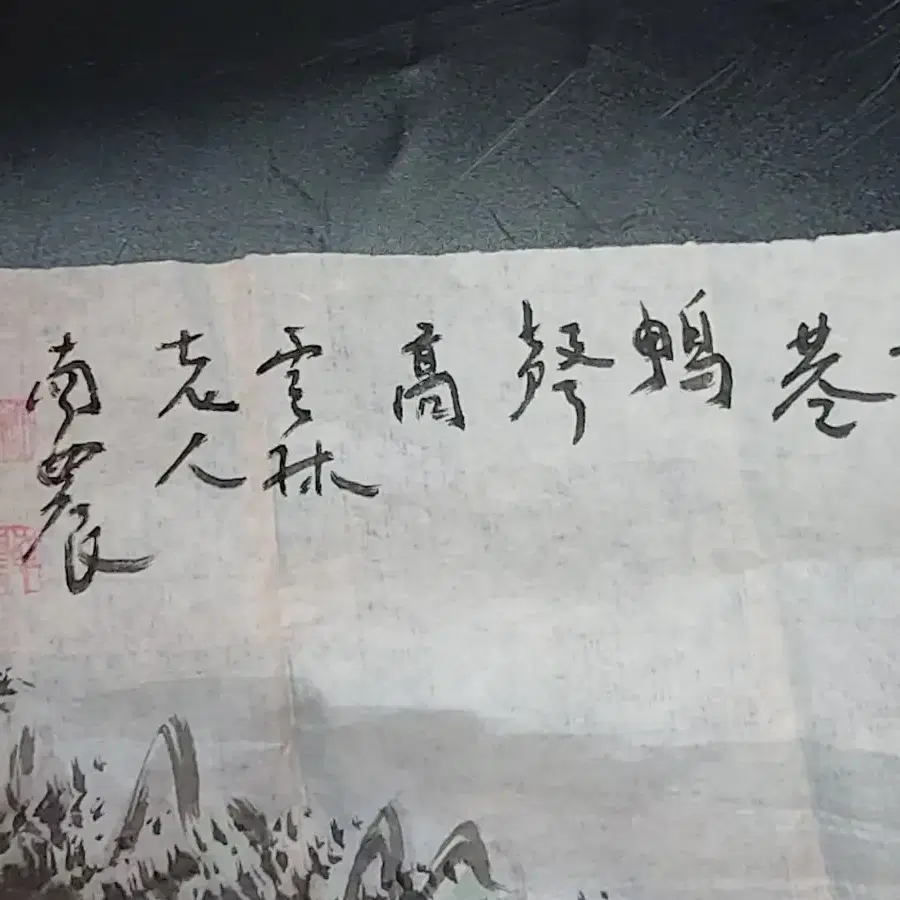 巷
鴨
聲
高
雲林
老人
南農